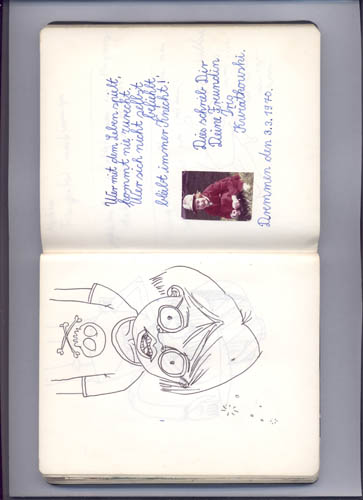 Wer mit dem Leben spielt,
kommt nie zurecht,
Wer sich nicht selbst
befiehlt
bleibt immer Knecht!
Dies schrieb Dir
Deine Freundin
Kwiatkowski.
Dremmen den 3.3.1970.